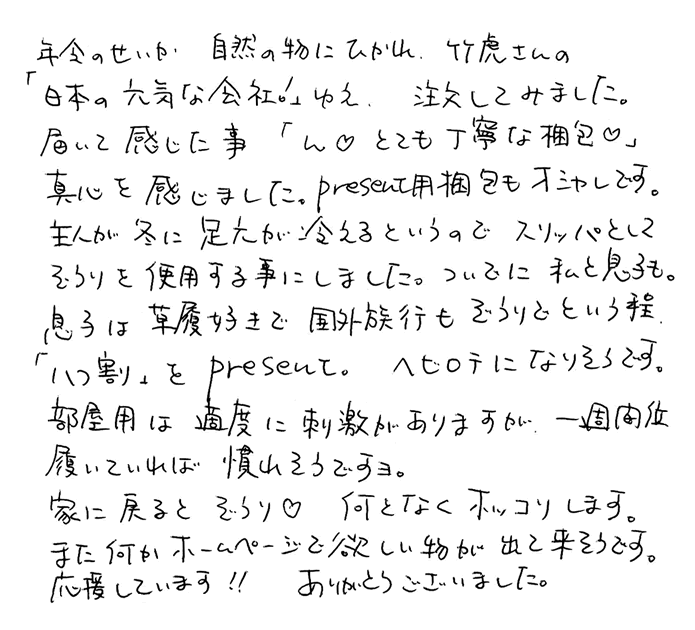 年令のせいか 自然の物にひかれ、竹虎さんの
「日本の元気な会社!」ゆえ、注文してみました。
届いて感じた事「ん♡とても丁寧な梱包♡」
真心を感じました。present用梱包もオシャレです。
主人が冬に足元が冷えるというのでスリッパとして
ぞうりを使用する事にしました。ついでに私と息子も。
息子は草履好きで国外旅行もぞうりでという程、
「八つ割り」をpresent。ヘビロテになりそうです。
部屋用は適度に刺激がありますが、一週間位
履いていれば慣れそうですヨ。
家に戻るとぞうり♡ 何となくホッコリします。
また何かホームページで欲しい物が出て来そうです。
応援しています!! ありがとうございました。